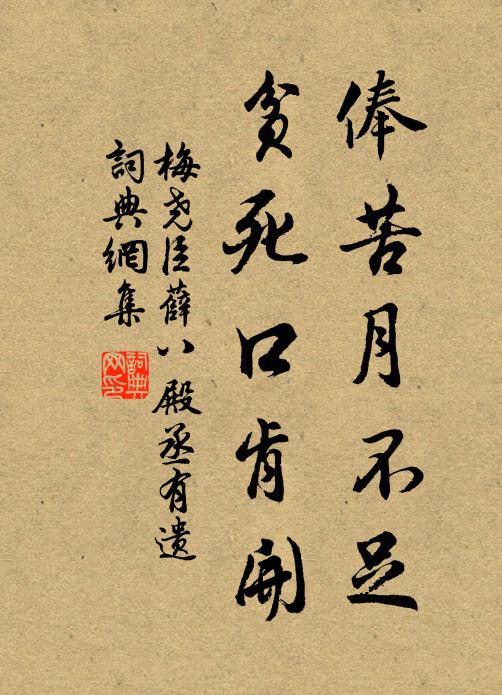 俸苦月不足
贫死口肯開
梅尧臣薛八殿丞有遗
詞典網集
詞典網印